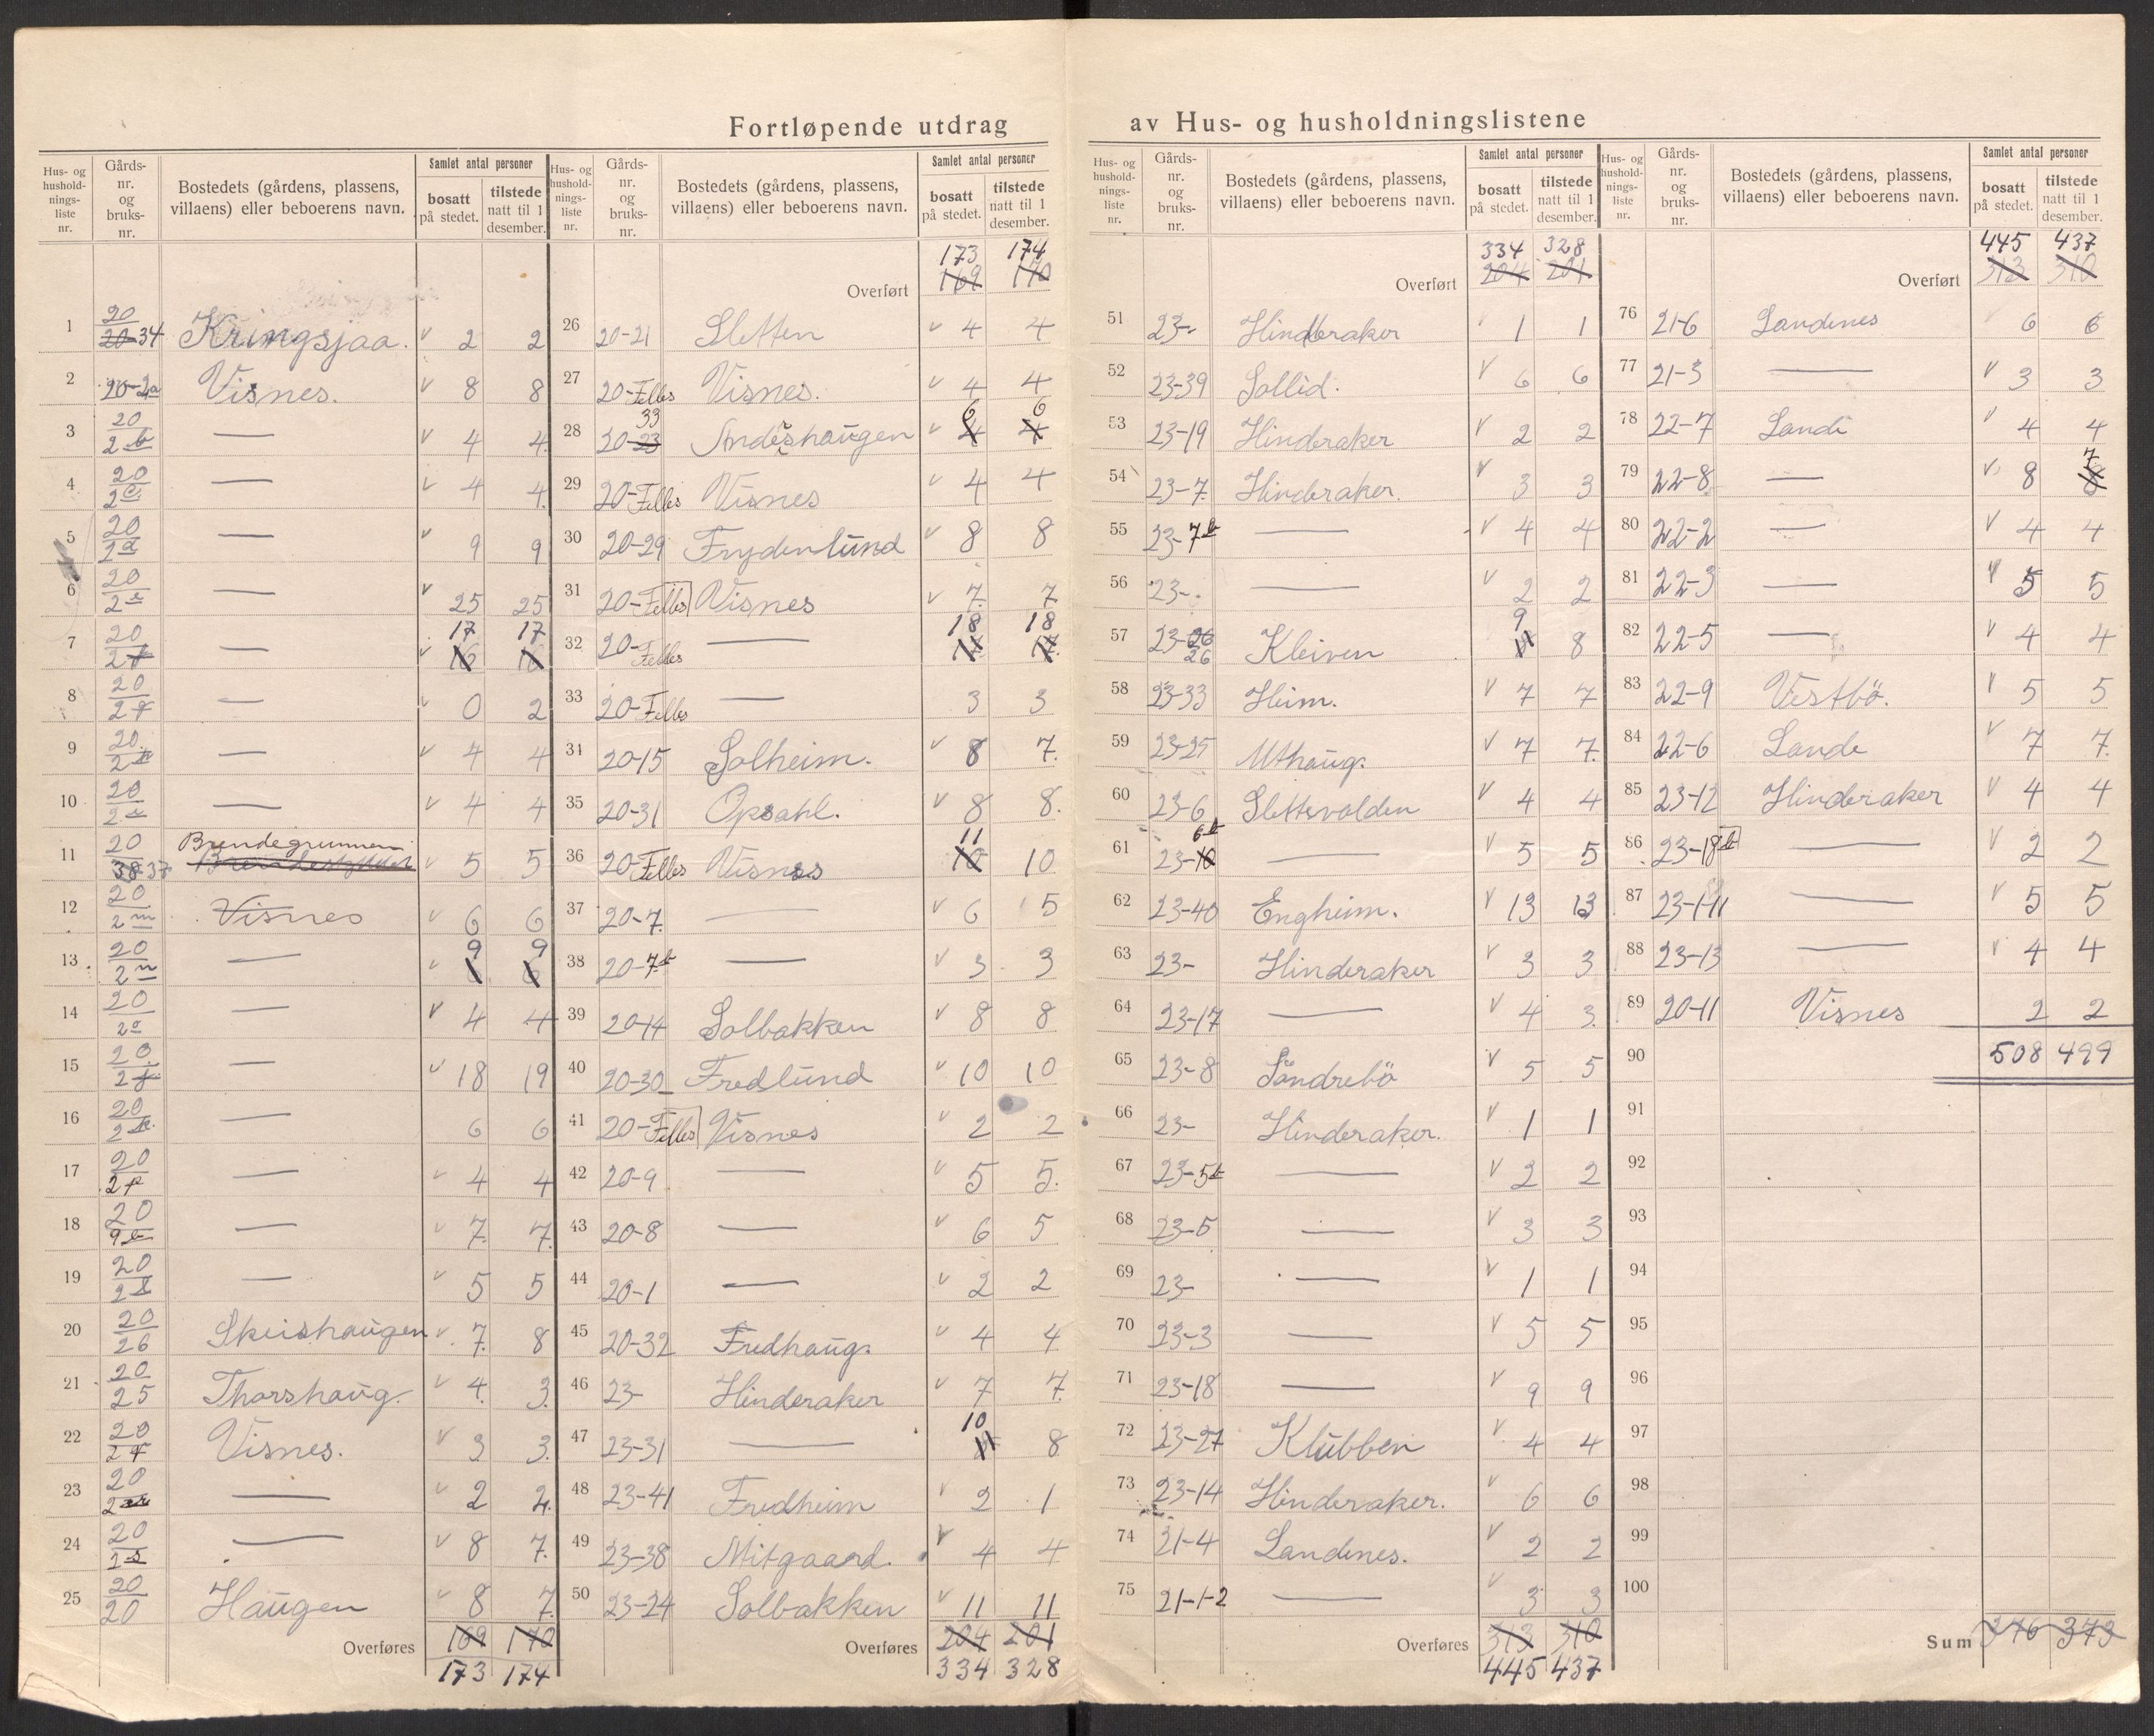 Fortløpende utdrag av Hus- og husholdningslistene
Hus- og husholdningsliste nr. | Gårds-nr. og bruks-nr. | Bostedets (gårdens, plassens, villaens) eller beboerens navn. | Samlet antal personer bosatt på stedet. | tilstede natt til 1 desember.
1 | 20 20-34 | Kringsjaa. | v 2 | 2
2 | 20-2a | Visnes. | v 8 | 8
3 | 20 2b | — | v 4 | 4
4 | 20 2c | — | v 4 | 4
5 | 20 2d | — | v 9 | 9
6 | 20 2e | — | v 25 | 25
7 | 20 2f | — | v 17 16 | 17 16
8 | 20 | — | v 0 | 2
9 | 20 | — | v 4 | 4
10 | 20 | — | v 4 | 4
11 | 20 38 37 | Brendegrunnen | v 5 | 5
12 | 20 2m | Visnes | v 6 | 6
13 | 20 2n | — | v 9 | 9
14 | 20 2o | — | v 4 | 4
15 | 20 2j | — | v 18 | 19
16 | 20 2k | — | 6 | 6
17 | 20 2p | — | v 4 | 4
18 | 20 9b | — | v 7. | 7.
19 | 20 | — | v 5 | 5
20 | 20 26 | Skeishaugen | v 7. | 8
21 | 20 25 | Thorshaug. | v 4. | 3.
22 | 20 | Visnes. | v 3 | 3.
23 | 20 | — | v 2 | 2.
24 | 20 2s | — | v 8 | 7.
25 | 20 20 | Haugen | v 8 | 7.
Overføres 169 170
173 174
Hus- og husholdningsliste nr. | Gårds-nr. og bruks-nr. | Bostedets (gårdens, plassens, villaens) eller beboerens navn. | Samlet antal personer bosatt på stedet. | tilstede natt til 1 desember.
173 174
Overført 169 170
26 | 20-21 | Sletten | v 4 | 4
27 | 20-Felles | Visnes. | v 4 | 4
28 | 20-23 33 | Andershaugen | v 6 4 | 6 4
29 | 20-Felles | Visnes | v 4 | 4
30 | 20-29 | Frydenlund | v 8 | 8
31 | 20-Felles | Visnes | v 7. | 7
32 | 20-Felles | — | 18 17 | 18 17.
33 | 20-Felles | — | 3 | 3
34 | 20-15 | Solheim. | v 8 | 7.
35 | 20-31 | Opsahl. | v 8 | 8.
36 | 20-Felles | Visnes | 11 10 | 10
37 | 20-7. | — | v 6 | 5
38 | 20-7b | — | v 3 | 3
39 | 20-14 | Solbakken | v 8 | 8
40 | 20-30 | Fredlund | v 10 | 10
41 | 20-Felles | Visnes | v 2 | 2
42 | 20-9 | — | v 5 | 5.
43 | 20-8 | — | v 6 | 5
44 | 20-1 | — | v 2 | 2
45 | 20-32 | Fredhaug. | v 4 | 4
46 | 23- | Hinderaker | v 7 | 7.
47 | 23-31 | — | 10 11 | 8
48 | 23-41 | Fredheim | v 2 | 1
49 | 23-38 | Mitgaard. | v 4 | 4
50 | 23-24 | Solbakken | v 11 | 11
Overføres 204 201
334 328
Hus- og husholdningsliste nr. | Gårds-nr. og bruks-nr. | Bostedets (gårdens, plassens, villaens) eller beboerens navn. | Samlet antal personer bosatt på stedet. | tilstede natt til 1 desember.
334 328
Overført 204 201
51 | 23- | Hinderaker | v 1 | 1
52 | 23-39 | Sollid. | v 6 | 6
53 | 23-19 | Hinderaker | v 2 | 2
54 | 23-7. | Hinderaker. | v 3 | 3
55 | 23-7b | — | v 4 | 4
56 | 23- | — | v 2 | 2
57 | 23-26 26 | Kleiven | 9 11 | 8
58 | 23-33 | Heim. | v 7 | 7.
59 | 23-25 | Uthaug. | v 7 | 7.
60 | 23-6 | Slettevolden | v 4 | 4
61 | 23-10 6b | — | v 5 | 5
62 | 23-40 | Engheim. | v 13 | 13
63 | 23- | Hinderaker | v 3 | 3
64 | 23-17 | — | v 4 | 3.
65 | 23-8 | Söndrebö | v 5 | 5
66 | 23- | Hinderaker. | v 1 | 1
67 | 23-5b | — | v 2 | 2
68 | 23-5 | — | v 3 | 3
69 | 23- | — | v 1 | 1
70 | 23-3 | — | v 5 | 5
71 | 23-18 | — | v 9 | 9
72 | 23-27 | Klubben | v 4 | 4
73 | 23-14 | Hinderaker. | v 6 | 6
74 | 21-4 | Landenes. | v 2 | 2
75 | 21-1-2 | — | v 3 | 3
Overføres 313 310
445 437
Hus- og husholdningsliste nr. | Gårds-nr. og bruks-nr. | Bostedets (gårdens, plassens, villaens) eller beboerens navn. | Samlet antal personer bosatt på stedet. | tilstede natt til 1 desember.
445 437
Overført 313 310
76 | 21-6 | Landenes | v 6 | 6
77 | 21-3 | — | v 3 | 3
78 | 22-7 | Lande | v 4 | 4
79 | 22-8 | — | v 8 | 7 8
80 | 22-2 | — | v 4 | 4
81 | 22-3 | — | v 5 | 5
82 | 22-5 | — | v 4 | 4
83 | 22-9 | Vestbö. | v 5 | 5
84 | 22-6 | Lande | v 7 | 7.
85 | 23-12 | Hinderaker | v 4 | 4
86 | 23-18b | — | v 2 | 2
87 | 23-1-11 | — | v 5 | 5
88 | 23-13 | — | v 4 | 4
89 | 20-11 | Visnes | 2 | 2
90 | 508 | 499
91
92
93
94
95
96
97
98
99
100
Sum 376 373